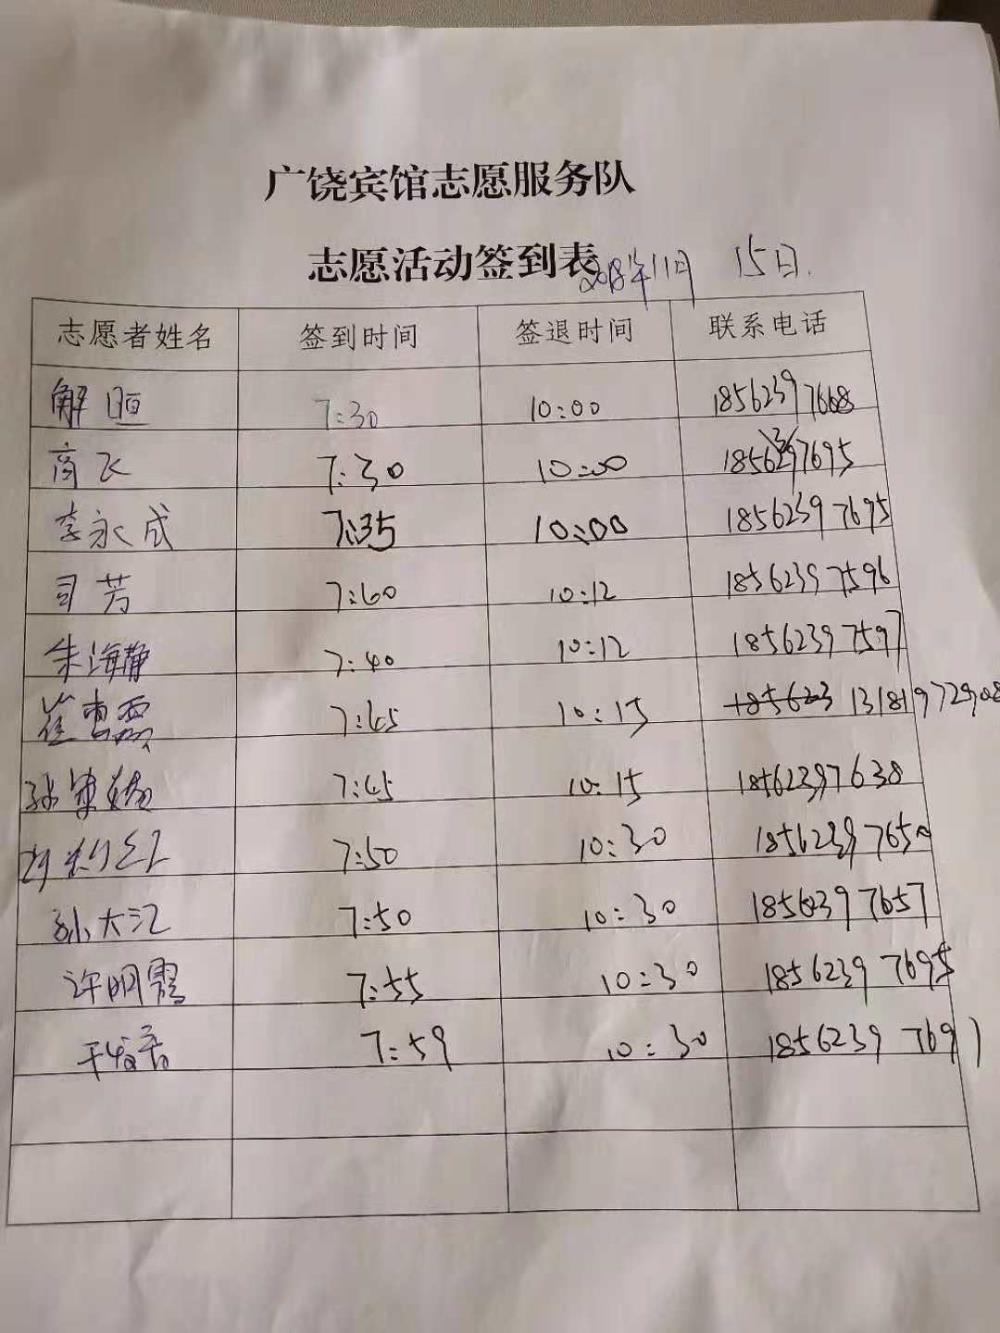 广饶宾馆志愿服务队
志愿活动签到表 2018年11月 15日.
志愿者姓名 签到时间 签退时间 联系电话
解 7:30 10:00 18562397668
商飞 7:30 10:00
李永成 7:35 10:00 18562397695
司芳 7:60 10:12 18562397596
朱海静 7:40 10:12 18562397597
崔 7:45 10:15 13181972908
7:45 10:15 18562397638
7:50 10:30 18562397650
孙大江 7:50 10:30 18562397657
许明霞 7:55 10:30 18562397695
7:59 10:30 18562397691